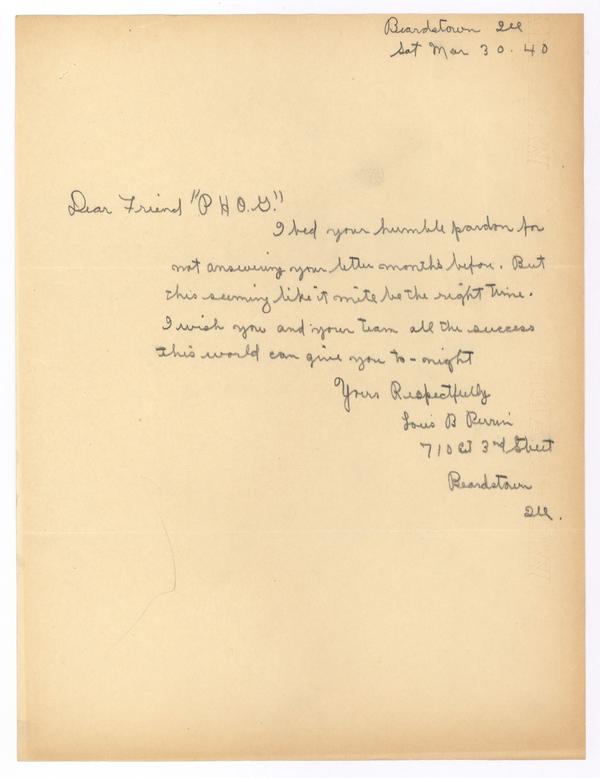 Beardstown Ill
Sat Mar 30. 40
Dear Friend "P H O.G."
I bed your humble pardon for
not answering your letter months before. But
this seeming like it mite be the right time.
I wish you and your team all the success
this world can give you to-night
Yours Respectfully
Louis B Perrin
710 3rd Street
Beardstown
Ill.